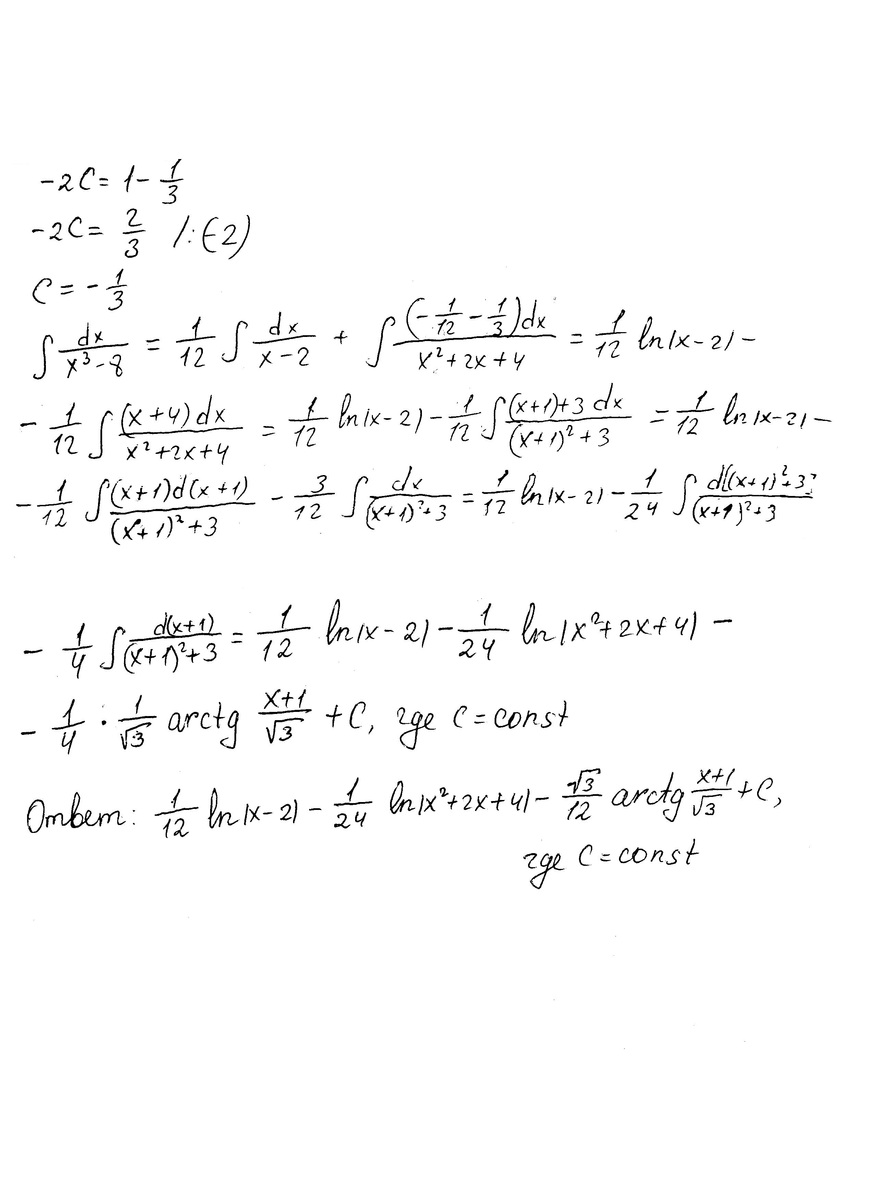 -2C = 1 - 1/3
-2C = 2/3 /:(-2)
C = -1/3
∫ dx/(x³-8) = 1/12 ∫ dx/(x-2) + ∫ (-1/12 - 1/3)dx/(x²+2x+4) = 1/12 ln|x-2| -
- 1/12 ∫ (x+4)dx/(x²+2x+4) = 1/12 ln|x-2| - 1/12 ∫ (x+1)+3 dx/((x+1)²+3) = 1/12 ln|x-2| -
- 1/12 ∫ (x+1)d(x+1)/((x+1)²+3) - 3/12 ∫ dx/((x+1)²+3) = 1/12 ln|x-2| - 1/24 ∫ d((x+1)²+3)/((x+1)²+3)
- 1/4 ∫ d(x+1)/((x+1)²+3) = 1/12 ln|x-2| - 1/24 ln|x²+2x+4| -
- 1/4 · 1/√3 arctg (x+1)/√3 + C, где C = const
Ответ: 1/12 ln|x-2| - 1/24 ln|x²+2x+4| - √3/12 arctg (x+1)/√3 + C,
где C = const